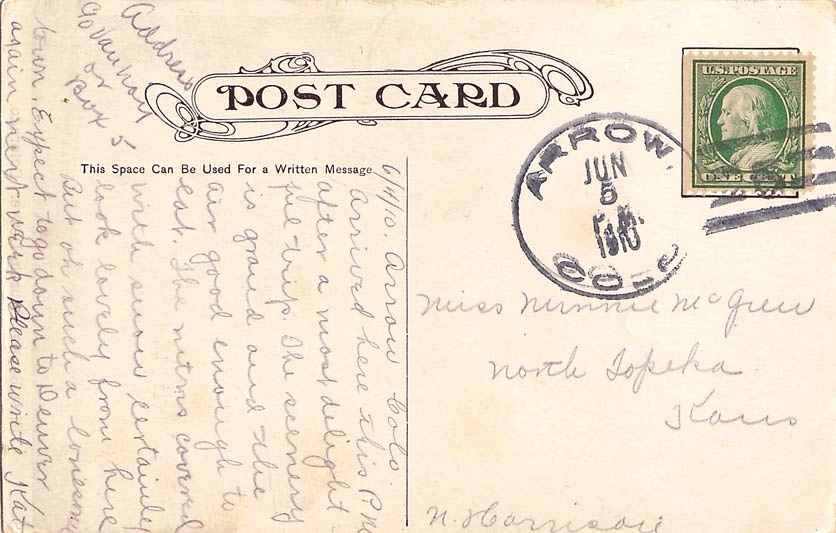 POST CARD
This Space Can Be Used For a Written Message
U.S. POSTAGE
ONE CENT
ARROW.
JUN
5
P.M.
1910
COLO
Miss Minnie McGrew
North Topeka
Kans
N. Harrison
6/4/10. Arrow Colo.
Arrived here this P.M
after a most delight
ful trip. The scenery
is grand and the
air good enough to
eat. The mtns covered
with snow certainly
look lovely from here
But oh such a lonesome
town. Expect to go down to Denver
again next week Please write Kate
Address
or
Box 5